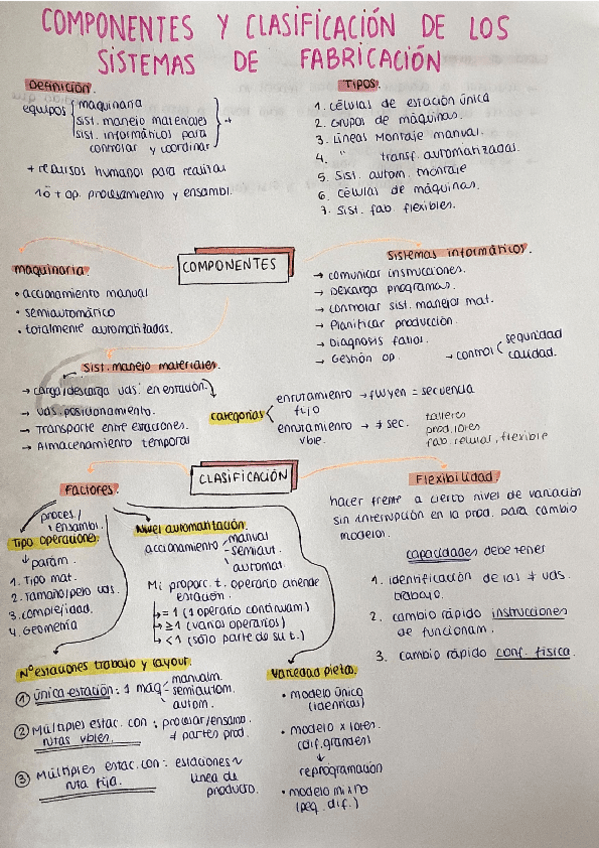 COMPONENTES Y CLASIFICACIÓN DE LOS
SISTEMAS DE FABRICACIÓN
Definición.
equipos
maquinaria
sist. manejo materiales
sist. informáticos para
controlar y coordinar
+
+ recursos humanos para realizar
1ó + op. procesamiento y ensambl.
TIPOS.
1. células de estación única
2. Grupos de máquinas.
3. Líneas Montaje manual.
4. " transf. automatizadas.
5. Sist. autom. montaje
6. células de máquinas.
7. Sist. fab. flexibles.
COMPONENTES
maquinaria.
• accionamiento manual
• semiautomático
• totalmente automatizadas.
Sistemas informáticos.
→ comunicar instrucciones.
→ Descarga programas.
→ controlar sist. manejos mat.
→ Planificar producción.
→ Diagnosis fallos.
→ Gestión op. → control
seguridad
calidad.
Sist. manejo materiales.
→ carga/descarga uds. en estación.
→ uds. posicionamiento.
→ Transporte entre estaciones.
→ Almacenamiento temporal
categorías
enrutamiento → fluyen = secuencia
fijo
enrutamiento → ≠ sec.
vble.
talleres
prod. lotes
fab. celular, flexible
CLASIFICACIÓN
Factores.
proces./
ensambl.
Tipo operaciones
↓ param.
1. Tipo mat.
2. Tamaño/peso uds.
3. complejidad.
4. Geometría
Nivel automatización.
accionamiento
manual
- semiaut.
automat.
Mi proporc. t. operario atiende
estación.
→ = 1 (1 operario continuam.)
→ ≥ 1 (varios operarios)
→ < 1 (sólo parte de su t.)
Flexibilidad.
hacer frente a cierto nivel de variación
sin interrupción en la prod. para cambio
modelos.
capacidades debe tener
1. identificación de las ≠ uds.
trabajo.
2. cambio rápido instrucciones
de funcionam.
3. cambio rápido conf. física.
Nº estaciones trabajo y layout.
① única estación: 1 maq
manualm.
- semiautom.
autom.
② Múltiples estac. con : procesar/ensamb.
rutas vbles. ≠ partes prod.
③ Múltiples estac. con : estaciones ~
ruta fija. línea de
producto.
Variedad piezas.
• modelo único
(idénticas)
• modelo x lotes.
(dif. grandes)
↓
reprogramación
• modelo mixto
(peq. dif.)